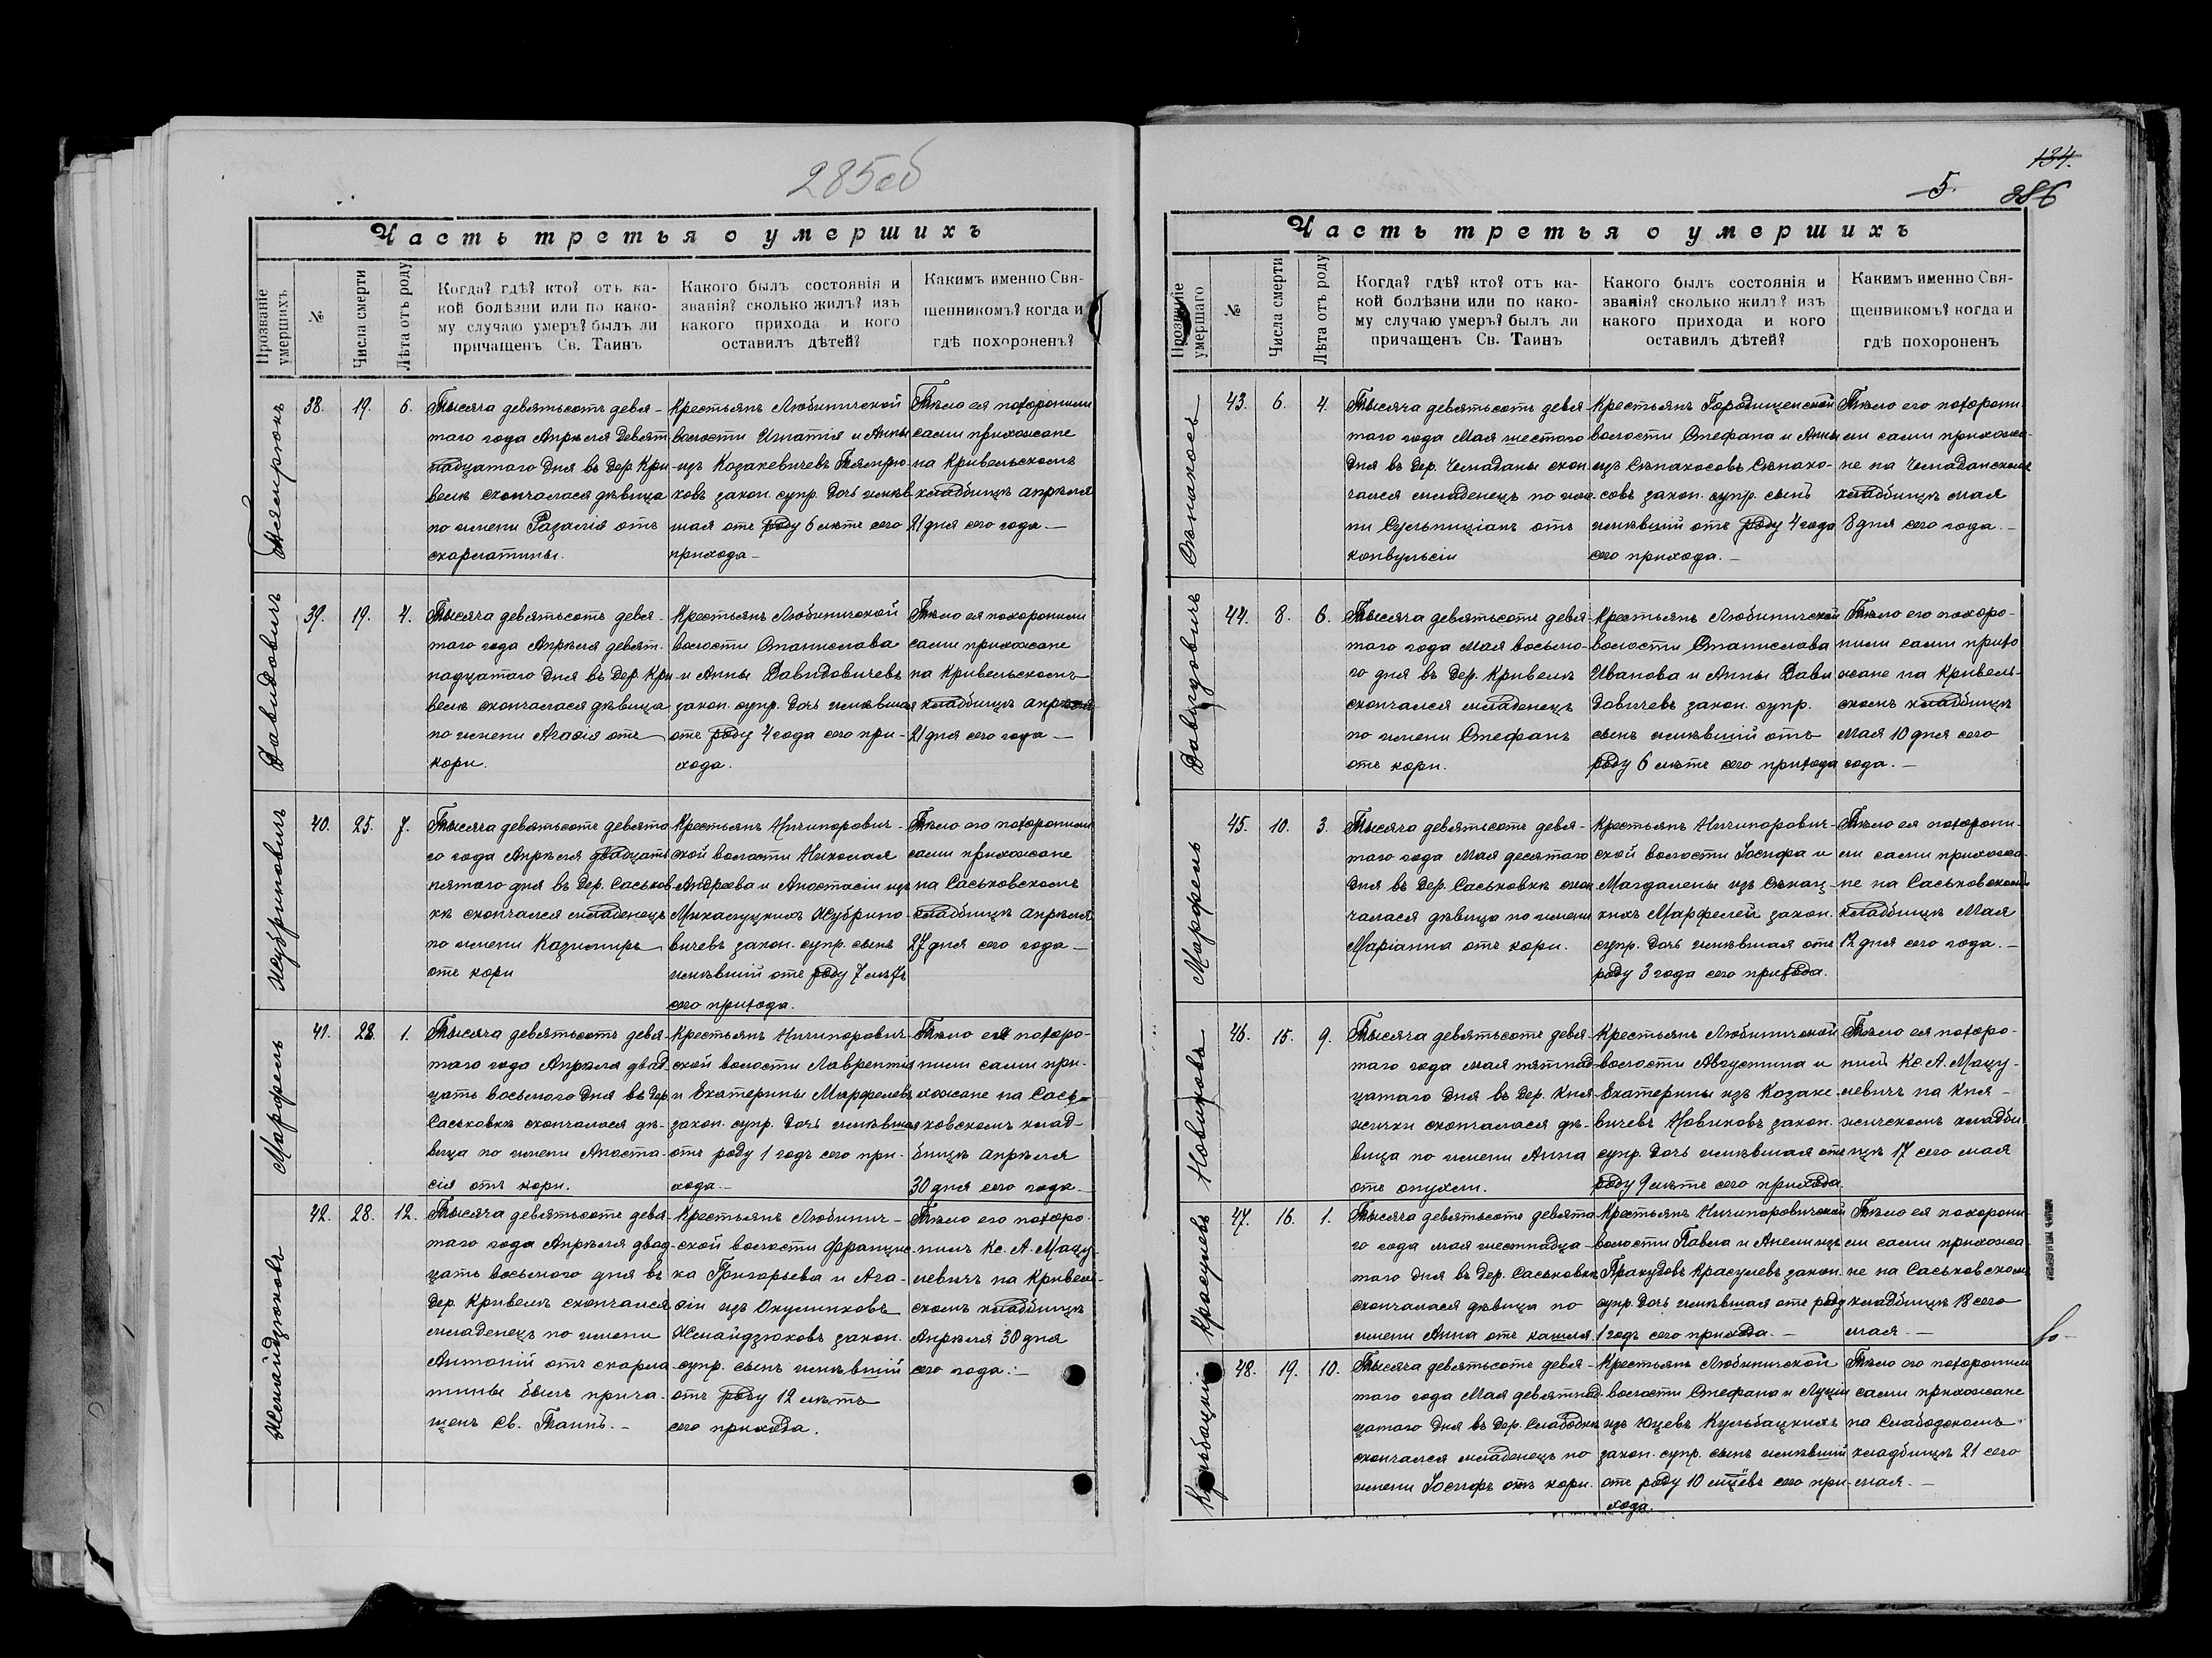 285об
Часть третья о умершихъ
Прозваніе умершихъ
№
Числа смерти
Лѣта отъ роду
Когда? гдѣ? кто? отъ ка-
кой болѣзни или по како-
му случаю умеръ? былъ ли
причащенъ Св. Таинъ
Какого былъ состоянія и
званія? сколько жилъ? изъ
какого прихода и кого
оставилъ дѣтей?
Какимъ именно Свя-
щенникомъ? когда и
гдѣ похороненъ?
38.
19.
6.
Тысяча девятьсотъ девя-
таго года Апрѣля девят-
надцатаго дня въ дер. Кри-
велѣ скончалася дѣвица
по имени Разалія отъ
скарлатины.
Крестьянъ Любиничской
волости Игнатія и Анны
изъ Козакевичевъ
законн. супр. дочь имѣв
шая отъ роду 6 лѣтъ сего
прихода
Тѣло ея похоронили
сами прихожане
на Кривельскомъ
кладбищѣ апрѣля
21 дня сего года
Давидовичъ
39.
19.
4.
Тысяча девятьсотъ девя-
таго года Апрѣля девят-
надцатаго дня въ дер. Кри-
велѣ скончалася дѣвица
по имени Агафія отъ
кори.
Крестьянъ Любиничской
волости Станислава
и Анны Давидовичевъ
закон. супр. дочь имѣвшая
отъ роду 4 года сего при-
хода.
Тѣло ея похоронили
сами прихожане
на Кривельскомъ
кладбищѣ апрѣля
21 дня сего года
Жубриновичъ
40.
25.
7.
Тысяча девятьсотъ девята
го года Апрѣля двадцать
пятаго дня въ дер. Саськов
кѣ скончался младенецъ
по имени Казимиръ
отъ кори
Крестьянъ Ничипорович-
ской волости Николая
Андреева и Анастасіи изъ
Михалуцкихъ Жубрино-
вичевъ закон. супр. сынъ
имѣвшій отъ роду 7 лѣтъ
сего прихода.
Тѣло его похоронили
сами прихожане
на Саськовскомъ
кладбищѣ апрѣля
27 дня сего года
Марфель
41.
28.
1.
Тысяча девятьсотъ девя-
таго года Апрѣля двад-
цать восьмого дня въ дер.
Саськовкѣ скончалася дѣ-
вица по имени Анаста-
сія отъ кори.
Крестьянъ Ничипорович
ской волости Лаврентія
и Екатерины Марфелевъ
закон. супр. дочь имѣвшая
отъ роду 1 годъ сего при-
хода.
Тѣло ея похоро-
нили сами при-
хожане на Сась-
ковскомъ клад-
бищѣ апрѣля
30 дня сего года
Жмайдзюковъ
42.
28.
12.
Тысяча девятьсотъ девя-
таго года Апрѣля двад-
цать восьмого дня въ
дер. Кривелѣ скончался
младенецъ по имени
Антоній отъ скарла-
тины былъ прича-
щенъ Св. Таинъ.
Крестьянъ Любинич-
ской волости Францис-
ка Григорьева и Ага-
фіи изъ Окуликовъ
Жмайдзюковъ закон.
супр. сынъ имѣвшій
отъ роду 12 лѣтъ
сего прихода.
Тѣло его похоро-
нилъ Кс. А. Мацу-
левичъ на Кривель-
скомъ кладбищѣ
Апрѣля 30 дня
сего года.
134.
5.
286
Часть третья о умершихъ
Прозваніе умершаго
№
Числа смерти
Лѣта отъ роду
Когда? гдѣ? кто? отъ ка-
кой болѣзни или по како-
му случаю умеръ? былъ ли
причащенъ Св. Таинъ
Какого былъ состоянія и
званія? сколько жилъ? изъ
какого прихода и кого
оставилъ дѣтей?
Какимъ именно Свя-
щенникомъ? когда и
гдѣ похороненъ
Сѣнакосъ
43.
6.
4.
Тысяча девятьсотъ девя-
таго года Мая шестого
дня въ дер. Чемаданы скон-
чался младенецъ по име-
ни Сульпиціанъ отъ
конвульсіи
Крестьянъ Городищенской
волости Стефана и Анны
изъ Сѣнакосовъ Сѣнако-
совъ закон. супр. сынъ
имѣвшій отъ роду 4 года
сего прихода.
Тѣло его похорони-
ли сами прихожа-
не на Чемаданскомъ
кладбищѣ мая
8 дня сего года.
Давидовичъ
44.
8.
6.
Тысяча девятьсотъ девя-
таго года мая восьмо-
го дня въ дер. Кривелѣ
скончался младенецъ
по имени Стефанъ
отъ кори.
Крестьянъ Любиничской
волости Станислава
Иванова и Анны Дави
довичевъ закон. супр.
сынъ имѣвшій отъ
роду 6 лѣтъ сего прихода
Тѣло его похоро-
нили сами прихо
жане на Кривель-
скомъ кладбищѣ
мая 10 дня сего
года.
Марфель
45.
10.
3.
Тысяча девятьсотъ девя-
таго года Мая десятаго
дня въ дер. Саськовкѣ скон
чалася дѣвица по имени
Маріанна отъ кори.
Крестьянъ Ничипорович-
ской волости Іосифа и
Магдалены изъ Сѣнац-
кихъ Марфелей закон.
супр. дочь имѣвшая отъ
роду 3 года сего прихода.
Тѣло ея похорони-
ли сами прихожа-
не на Саськовскомъ
кладбищѣ Мая
12 дня сего года.
Новиковъ
46.
15.
9.
Тысяча девятьсотъ девя-
таго года мая пятнад-
цатаго дня въ дер. Кня-
жички скончалася дѣ-
вица по имени Анна
отъ опухли.
Крестьянъ Любиничской
волости Августина и
Екатерины изъ Козаке-
вичевъ Новиковъ закон.
супр. дочь имѣвшая отъ
роду 9 лѣтъ сего прихода.
Тѣло ея похоро-
нилъ Кс. А. Мацу-
левичъ на Кня-
жическомъ кладби
щѣ 17 сего мая
Красулевъ
47.
16.
1.
Тысяча девятьсотъ девята
го года мая шестнадца-
таго дня въ дер. Саськовкѣ
скончалася дѣвица по
имени Анна отъ кашля.
Крестьянъ Ничипоровичской
волости Павла и Анели изъ
Пракудовъ Красулевъ закон.
супр. дочь имѣвшая отъ роду
1 годъ сего прихода.
Тѣло ея похорони-
ли сами прихожа-
не на Саськовскомъ
кладбищѣ 18 сего
мая.
Кульбацкій
48.
19.
10.
Тысяча девятьсотъ девя-
таго года Мая девятнад-
цатаго дня въ дер. Слабодкѣ
скончался младенецъ по
имени Іосифъ отъ кори.
Крестьянъ Любиничской
волости Стефана и Луціи
изъ Юцевъ Кульбацкихъ
закон. супр. сынъ имѣвшій
отъ роду 10 мцевъ сего при-
хода.
Тѣло его похоронили
сами прихожане
на Слабодскомъ
кладбищѣ 21 сего
мая.